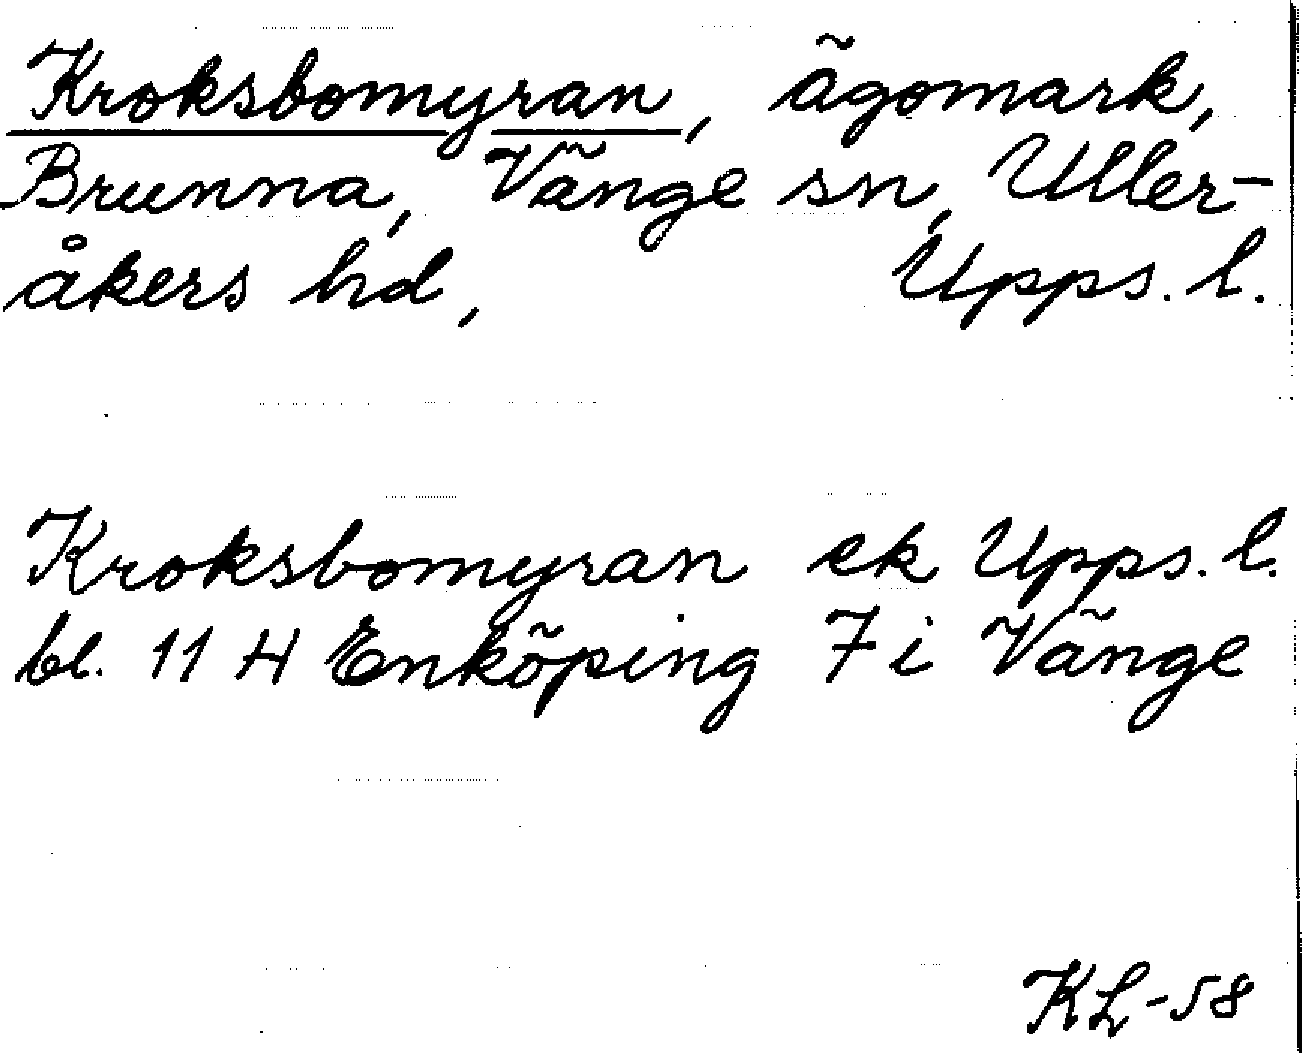 Kroksbomyran, ägomark,
Brunna, Vänge sn, Uller-
åkers hd, Upps. l.
Kroksbomyran ek Upps. l.
bl. 11 H Enköping 7 i Vänge
KL-58